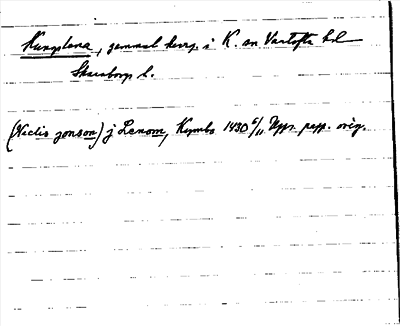 Kungslena, gammal herrg. i K. sn Vartofta hd
Skaraborgs l.
(Niclis jonson) j Lenom, Kymbo 1430 6/11 Upps. papp. orig.